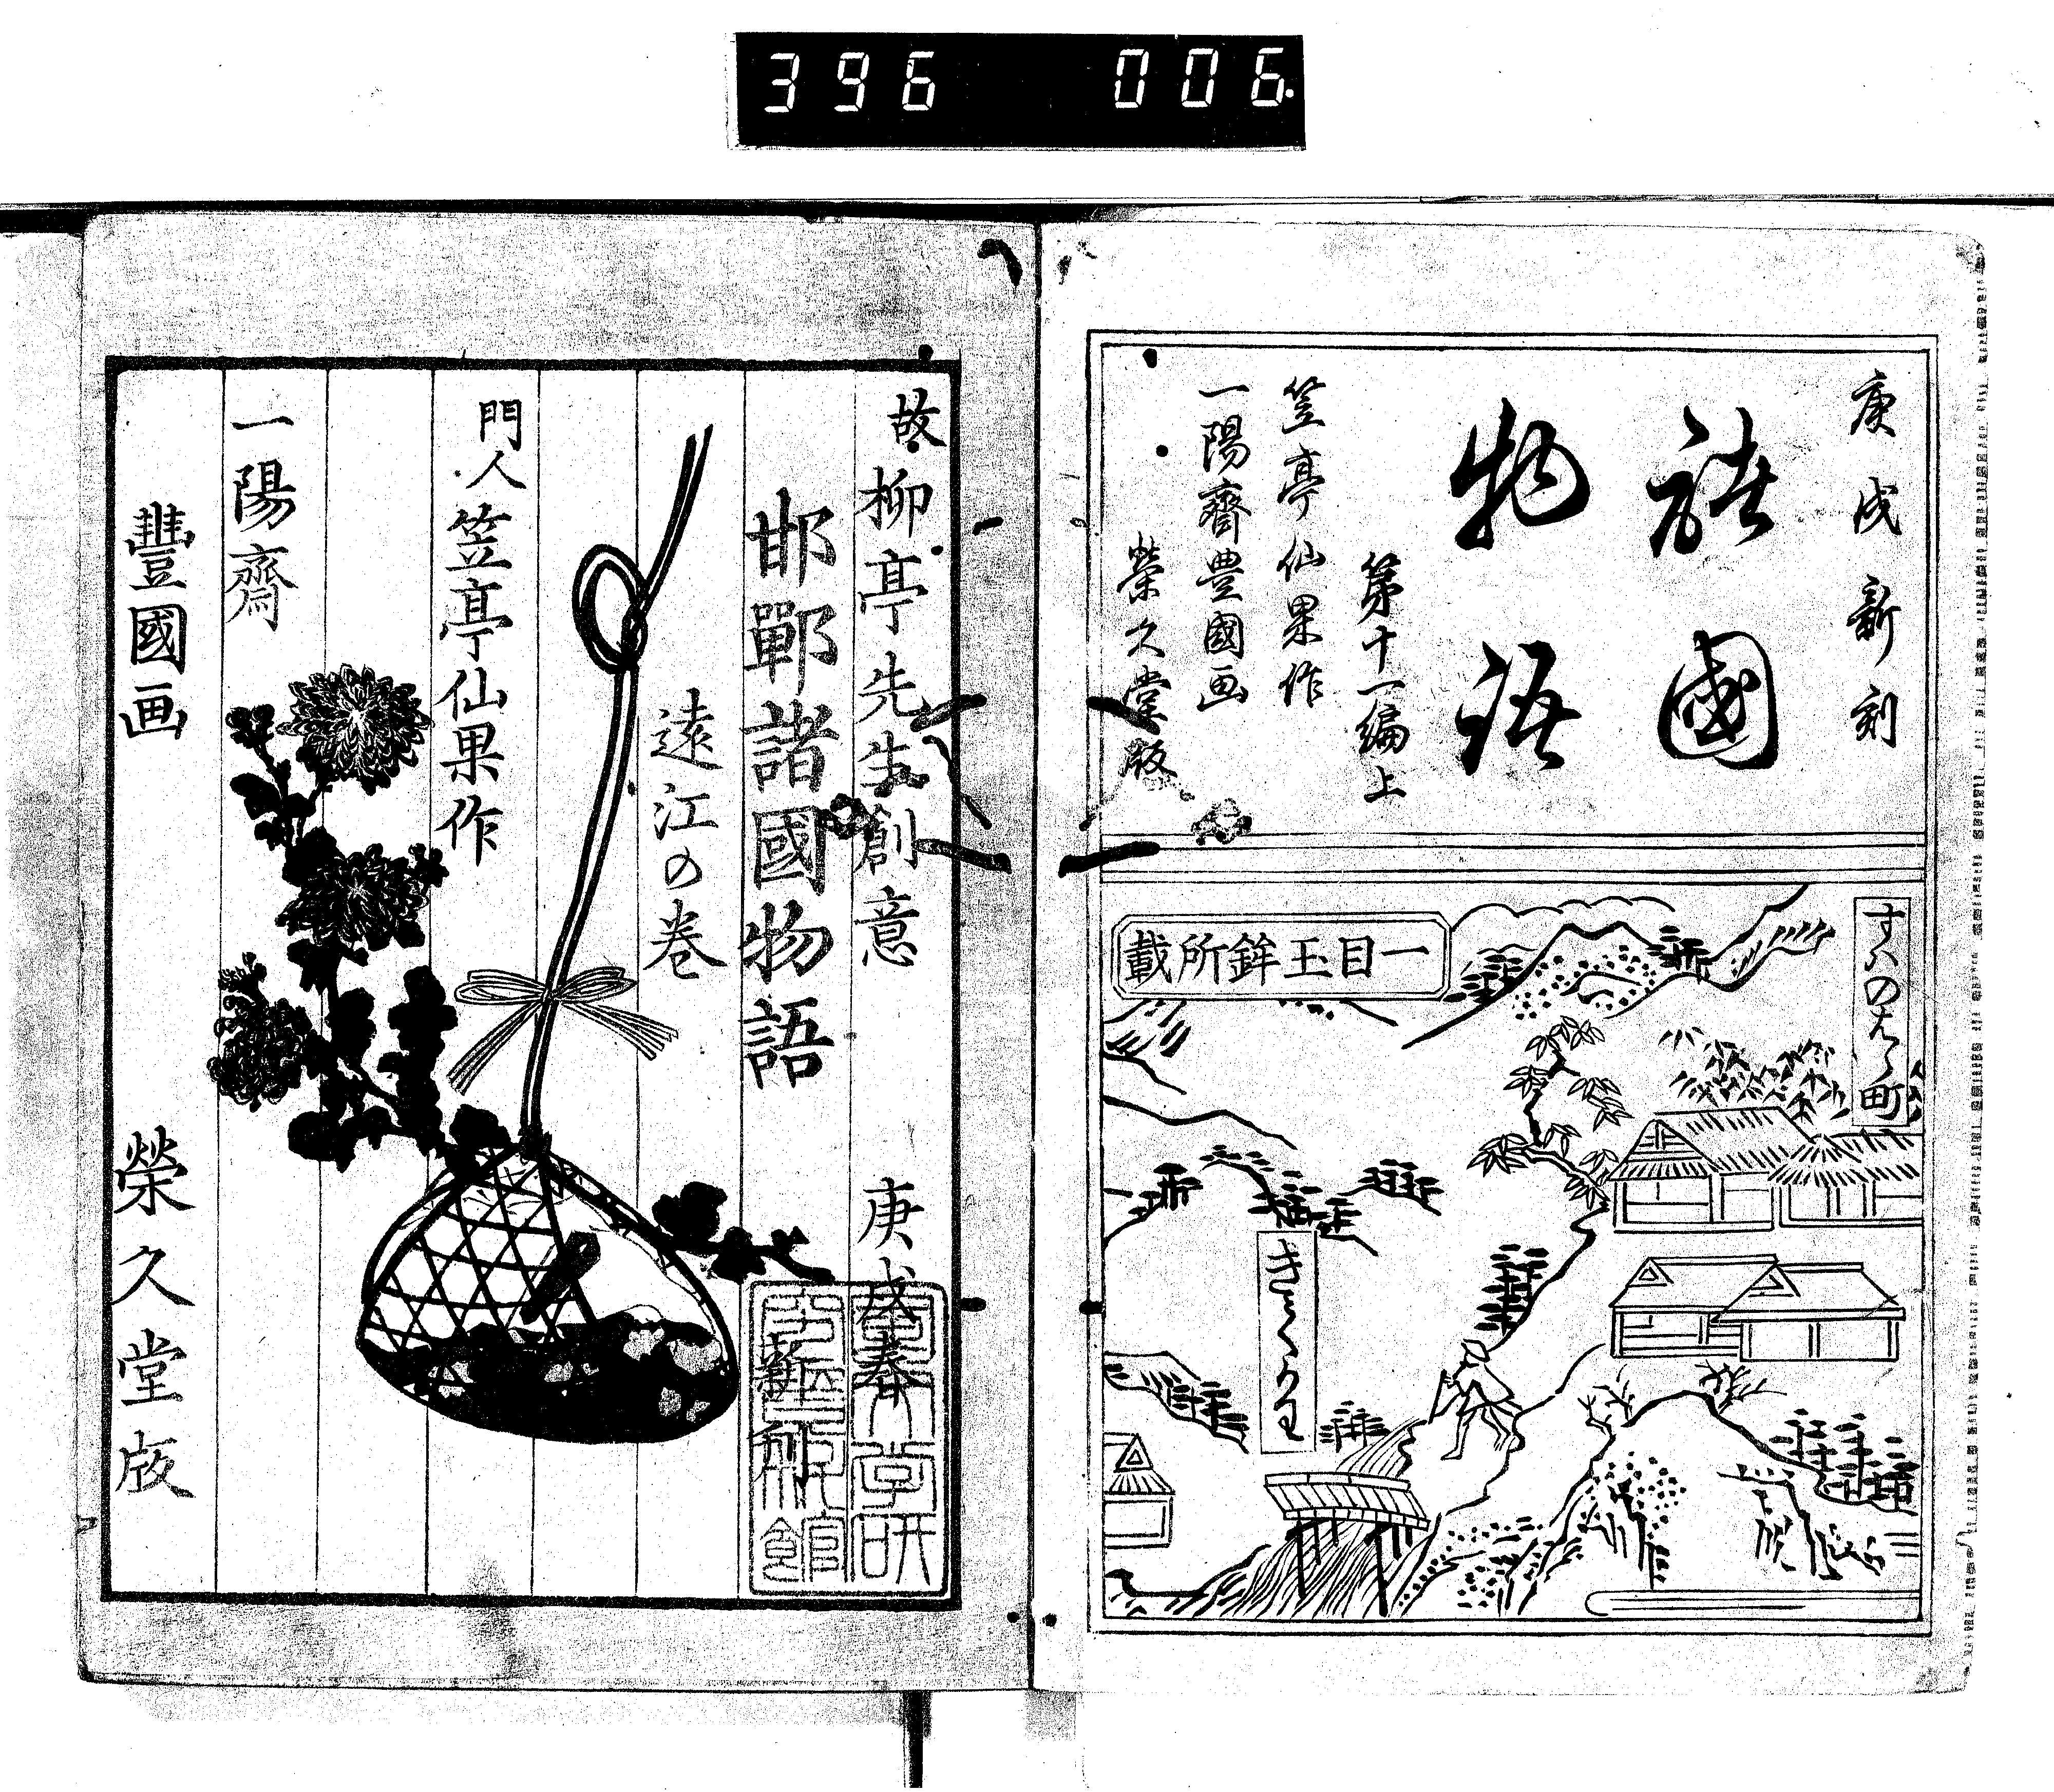 396 006.
庚戌新刻
諸國
物語
第十一編上
笠亭仙果作
一陽齋豊國画
榮久堂版
一目玉鉾所載
故柳亭先生創意
庚戌春
新刻
邯鄲諸國物語
遠江の巻
門人笠亭仙果作
一陽齋
豐國画
榮久堂版